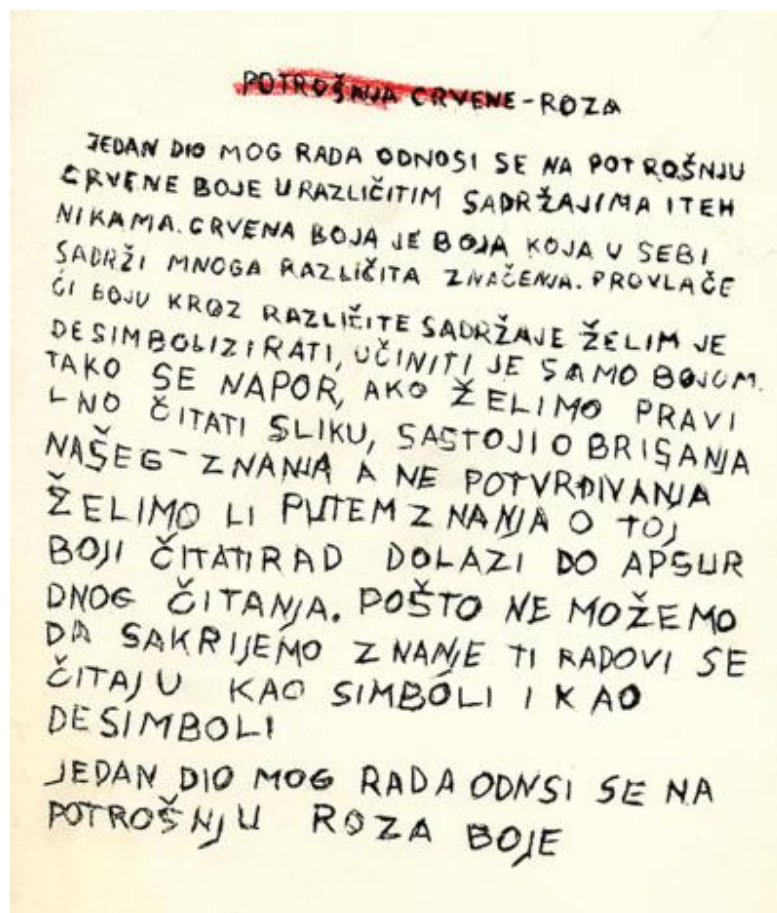 POTROŠNJA CRVENE-ROZA
JEDAN DIO MOG RADA ODNOSI SE NA POTROŠNJU
CRVENE BOJE U RAZLIČITIM SADRŽAJIMA I TEH
NIKAMA. CRVENA BOJA JE BOJA KOJA U SEBI
SADRŽI MNOGA RAZLIČITA ZNAČENJA. PROVLAČE
ĆI BOJU KROZ RAZLIČITE SADRŽAJE ŽELIM JE
DESIMBOLIZIRATI, UČINITI JE SAMO BOJOM.
TAKO SE NAPOR, AKO ŽELIMO PRAVI
LNO ČITATI SLIKU, SASTOJI O BRISANJA
NAŠEG-ZNANJA A NE POTVRĐIVANJA
ŽELIMO LI PUTEM ZNANJA O TOJ
BOJI ČITATI RAD DOLAZI DO APSUR
DNOG ČITANJA. POŠTO NE MOŽEMO
DA SAKRIJEMO ZNANJE TI RADOVI SE
ČITAJU KAO SIMBOLI I KAO
DESIMBOLI
JEDAN DIO MOG RADA ODNSI SE NA
POTROŠNJU ROZA BOJE